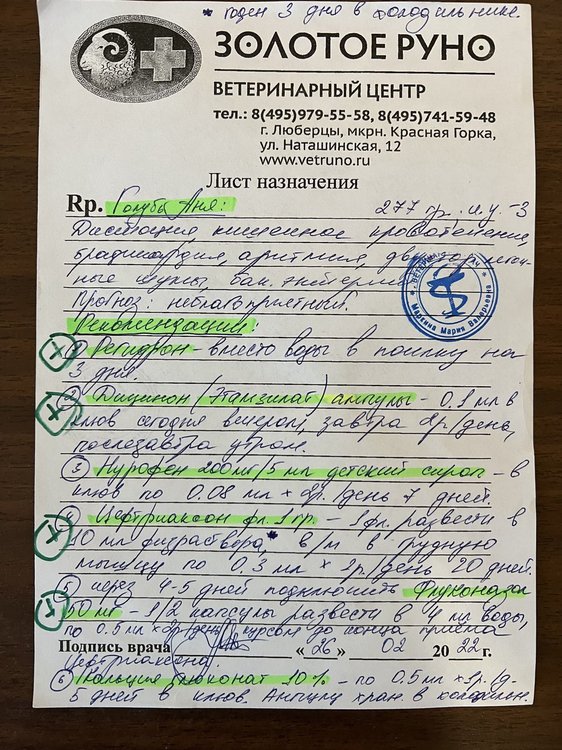 * годен 3 дня в холодильнике.
ЗОЛОТОЕ РУНО
ВЕТЕРИНАРНЫЙ ЦЕНТР
тел.: 8(495)979-55-58, 8(495)741-59-48
г. Люберцы, мкрн. Красная Горка,
ул. Наташинская, 12
www.vetruno.ru
Лист назначения
Rp. Голубь Аня: 277 гр., и.у.-3
кишечное кровотечение,
брадикардия, аритмия,
шумы, бак. энтерит
Прогноз: неблагоприятный.
Рекомендации:
① Регидрон - вместо воды в поилку на
3 дня.
② Дицинон (Этамзилат) ампулы - 0.1 мл в
клюв сегодня вечером, завтра 2р./день,
послезавтра утром.
③ Нурофен 200мг/5 мл детский сироп - в
клюв по 0.08 мл × 2р./день 7 дней.
④ Цефтриаксон фл. 1 гр. - 1 фл. развести в
10 мл физраствора,* в/м в грудную
мышцу по 0.3 мл × 1р./день 20 дней.
⑤ через 4-5 дней подключить Флуконазол
50 мг - 1/2 капсулы развести в 4 мл воды,
по 0.5 мл × 2р./день курсом до конца приема
Подпись врача « 26 » 02 20 22 г.
цефтриаксона.
⑥ Кальция глюконат 10% - по 0.5 мл × 1р./д
5 дней в клюв. Ампулу хран. в холодильн.